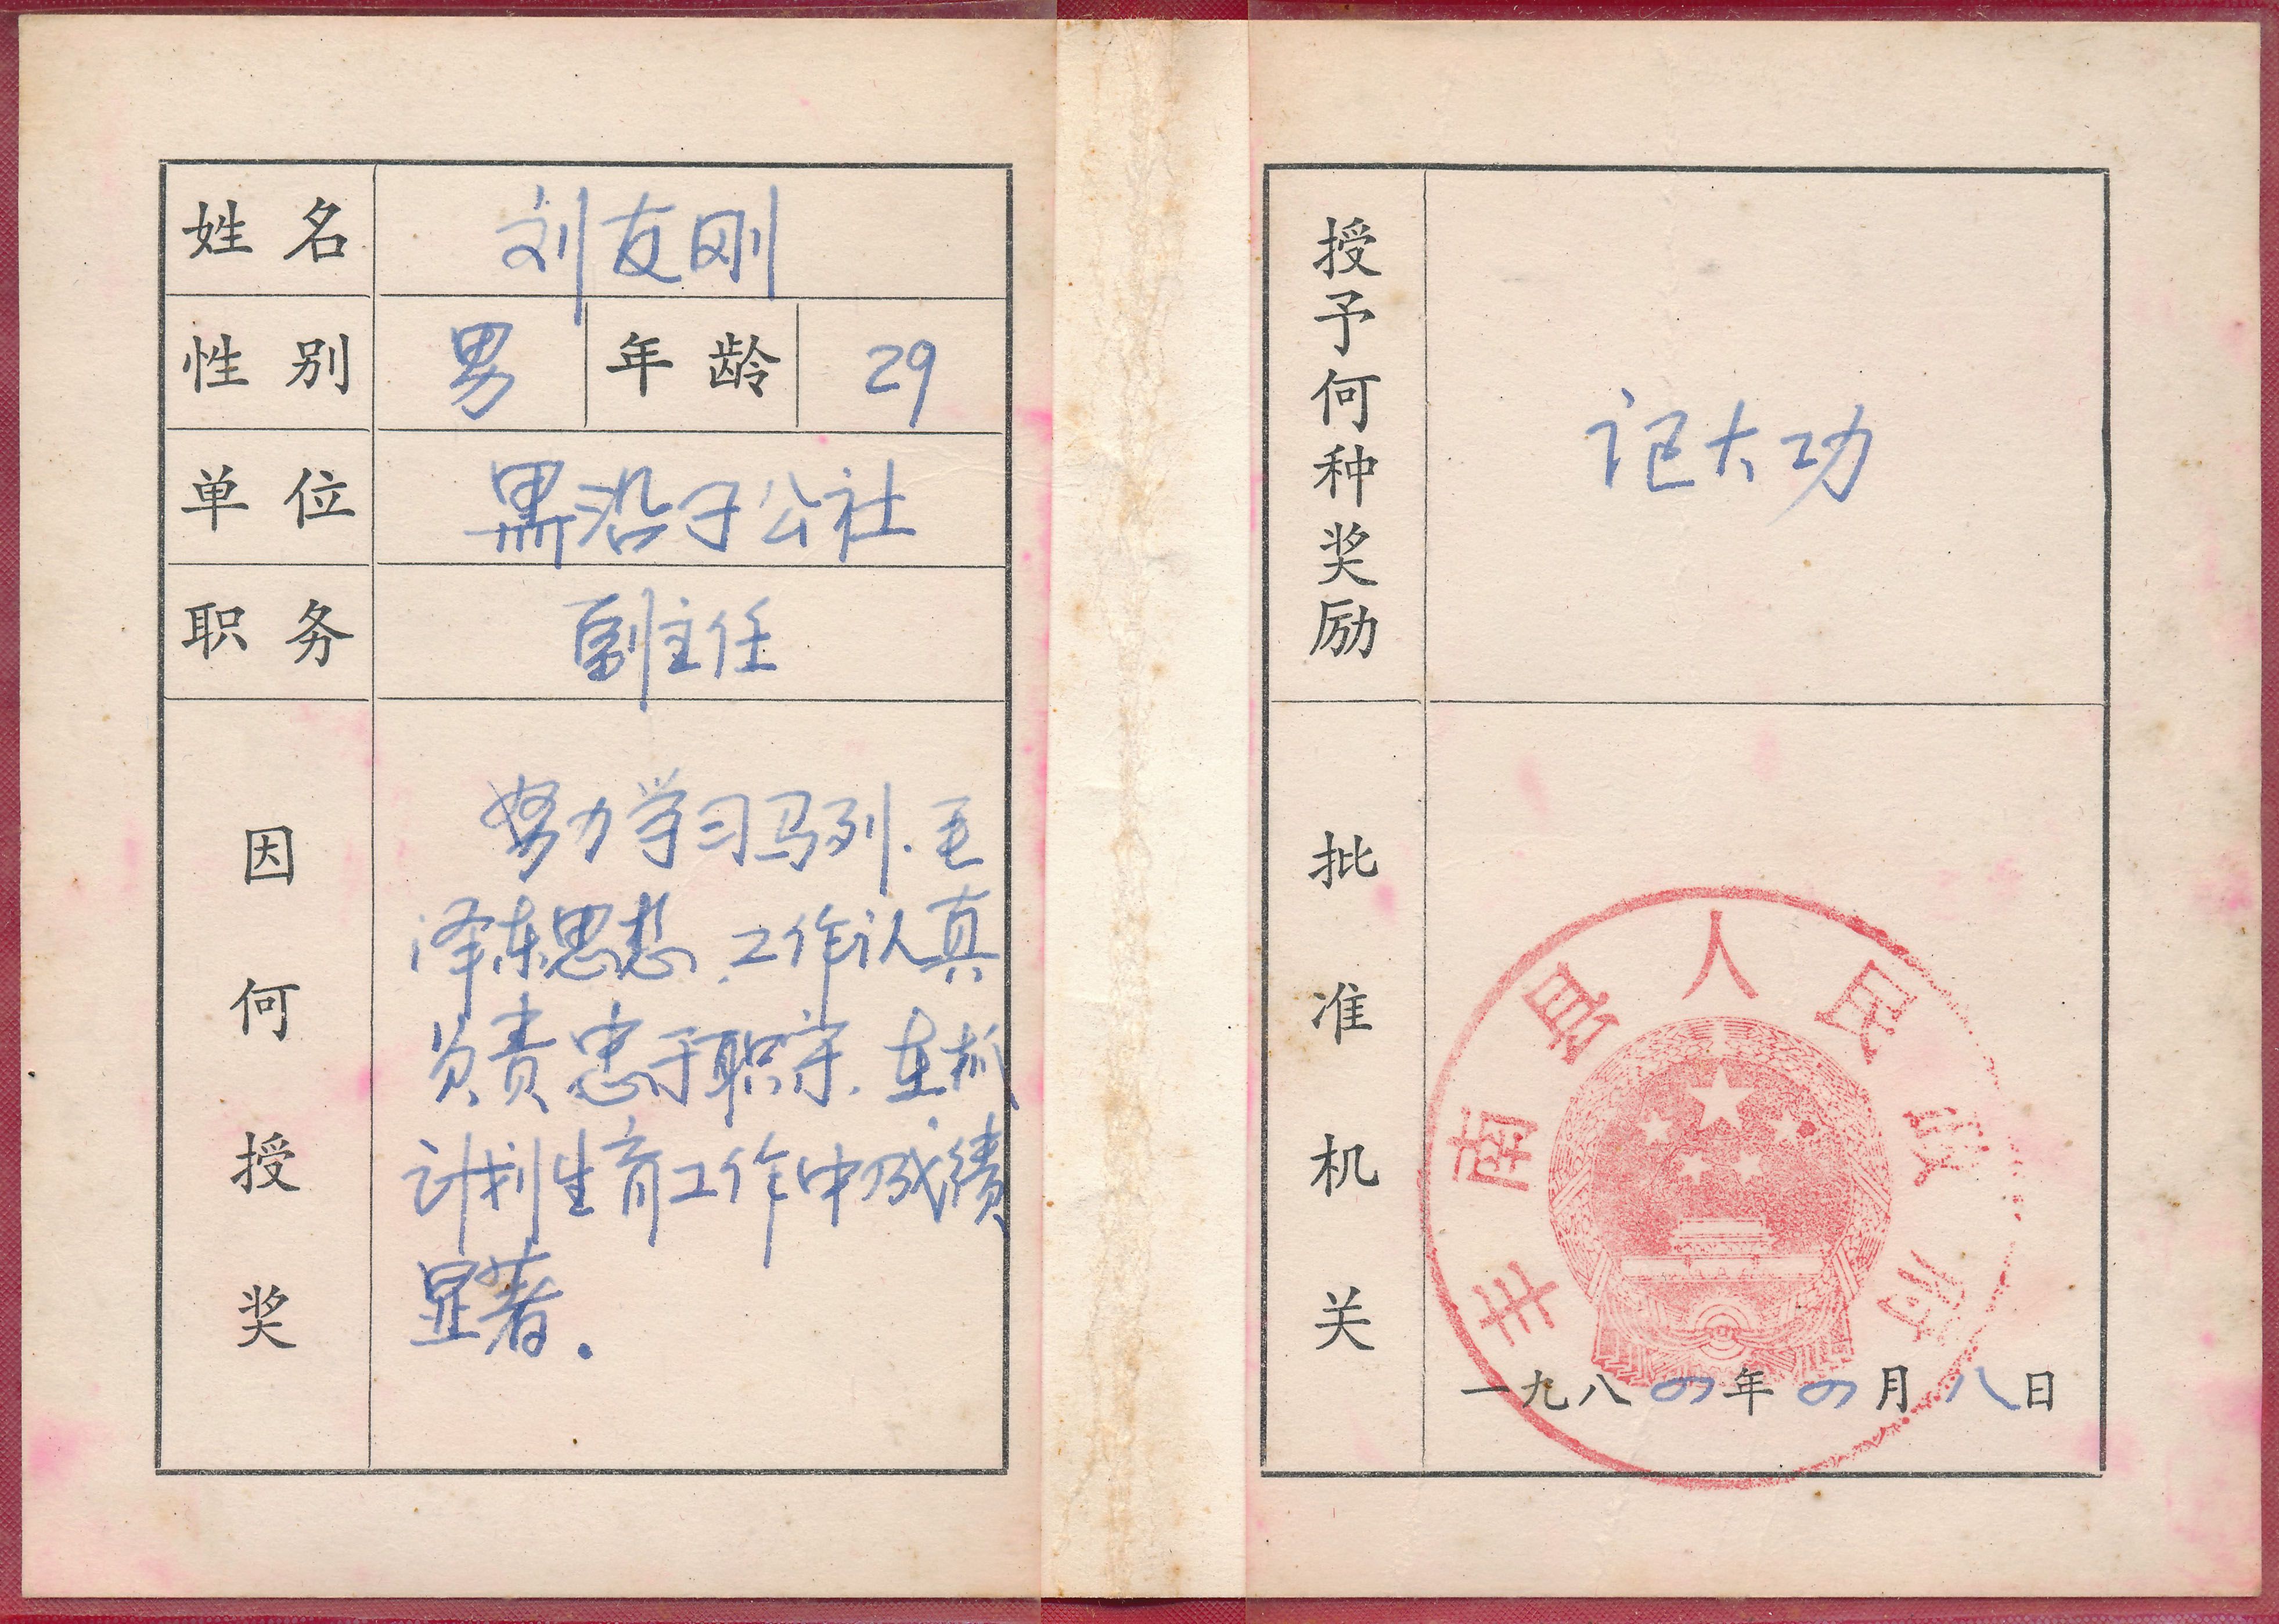 姓名 刘友刚
性别 男 年龄 29
单位 黑沿子公社
职务 副主任
因何授奖
努力学习马列.毛
泽东思想.工作认真
负责忠于职守.在抓
计划生育工作中成绩
显著.
授予何种奖励
记大功
批准机关
丰南县人民政府
一九八四年四月八日